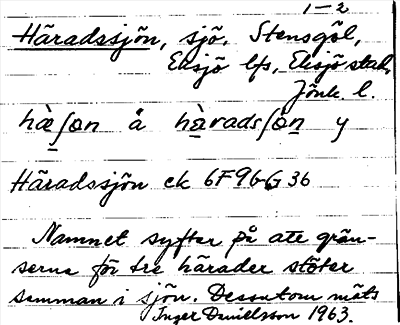 1-2
Häradssjön, sjö, Stensgöl,
Eksjö lfs, Eksjö stad,
Jönk. l.
hä̀ʃon å hä̀radsʃön y
Häradssjön ek 6F9b-G 36
Namnet syftar på att grän-
serna för tre härader stöter
samman i sjön. Dessutom möts
Inger Danielsson 1963.